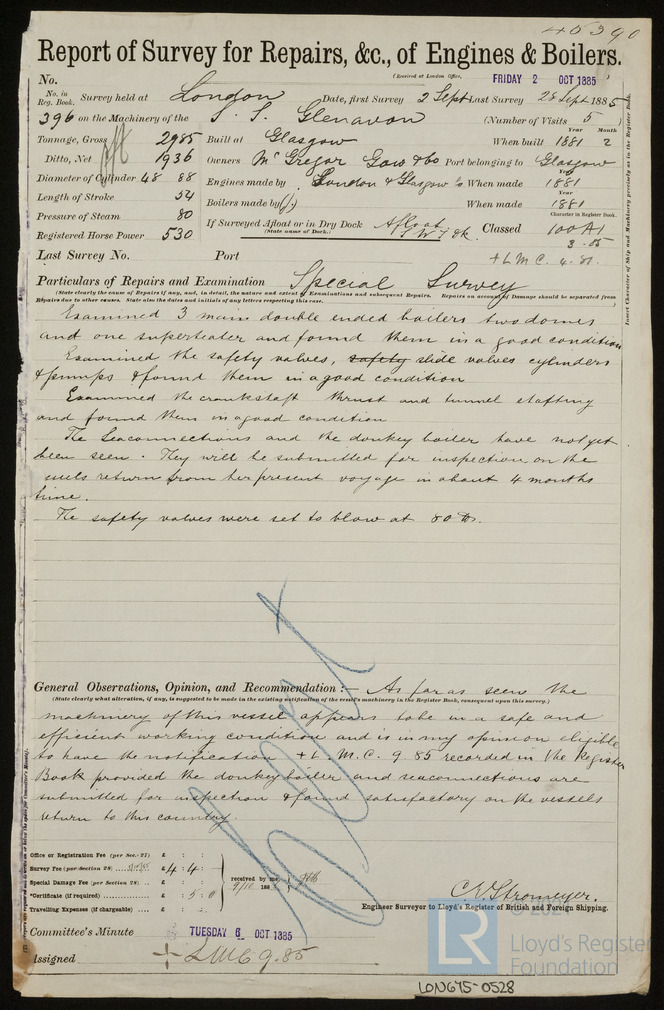 45390
Report of Survey for Repairs, &c., of Engines & Boilers.
(Received at London Office, FRIDAY 2 OCT 1885)
No.
No. in Reg. Book. Survey held at London Date, first Survey 2 Sept Last Survey 28 Sept 1885
396 on the Machinery of the S. S. Glenavon (Number of Visits 5)
Tonnage, Gross 2985 Built at Glasgow When built Year 1881 Month 2
Ditto, Net 1936 Owners McGregor Gow & Co Port belonging to Glasgow
Diameter of Cylinder 48 88 Engines made by London & Glasgow Co When made Year 1881
Length of Stroke 54 Boilers made by When made Year 1881
Pressure of Steam 80 If Surveyed Afloat or in Dry Dock Afloat Classed Character in Register Book. 100A1
(State name of Dock.) 3.85
Registered Horse Power 530
Last Survey No. Port + L M C. 4.81.
Particulars of Repairs and Examination Special Survey
(State clearly the cause of Repairs if any, and, in detail, the nature and extent of Examinations and subsequent Repairs. Repairs on account of Damage should be separated from
Repairs due to other causes. State also the dates and initials of any letters respecting this case.)
Examined 3 main double ended boilers two domes
and one superheater and found them in a good condition
Examined the safety valves, safety slide valves cylinders
& pumps & found them in a good condition
Examined the crankshaft thrust and tunnel shafting
and found them in a good condition
The Seaconnections and the donkey boiler have not yet
been seen. They will be submitted for inspection on the
vessels return from her present voyage in about 4 months
time.
The safety valves were set to blow at 80 lb.
General Observations, Opinion, and Recommendation :— As far as seen the
(State clearly what alteration, if any, is suggested to be made in the existing notification of the vessel's machinery in the Register Book, consequent upon this survey.)
machinery of this vessel appears to be in a safe and
efficient working condition and is in my opinion eligible
to have the notification + L. M. C. 9.85 recorded in the Register
Book provided the donkey boiler and seaconnections are
submitted for inspection & found satisfactory on the vessels
return to this country.
Office or Registration Fee (per Sec. 27) £ : :
Survey Fee (per Section 28) £ 4 : 4 :
Special Damage Fee (per Section 28) £ : :
*Certificate (if required) £ : 5 : 0
Travelling Expenses (if chargeable) £ : :
received by me,
9/10 188
C. E. Stromeyer.
Engineer Surveyor to Lloyd's Register of British and Foreign Shipping.
Committee's Minute TUESDAY 6 OCT 1885
Assigned + LMC 9.85
Insert Character of Ship and Machinery precisely as in the Register Book.
LR
Lloyd's Register
Foundation
LON675-0528